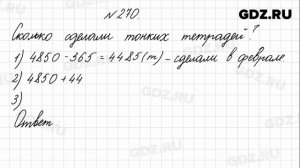 GDZ.RU
№ 270
Сколько сделали тонких тетрадей?
1) 4850 - 365 = 4485 (т) - сделали в феврале
2) 4850 + 44
3)
Ответ